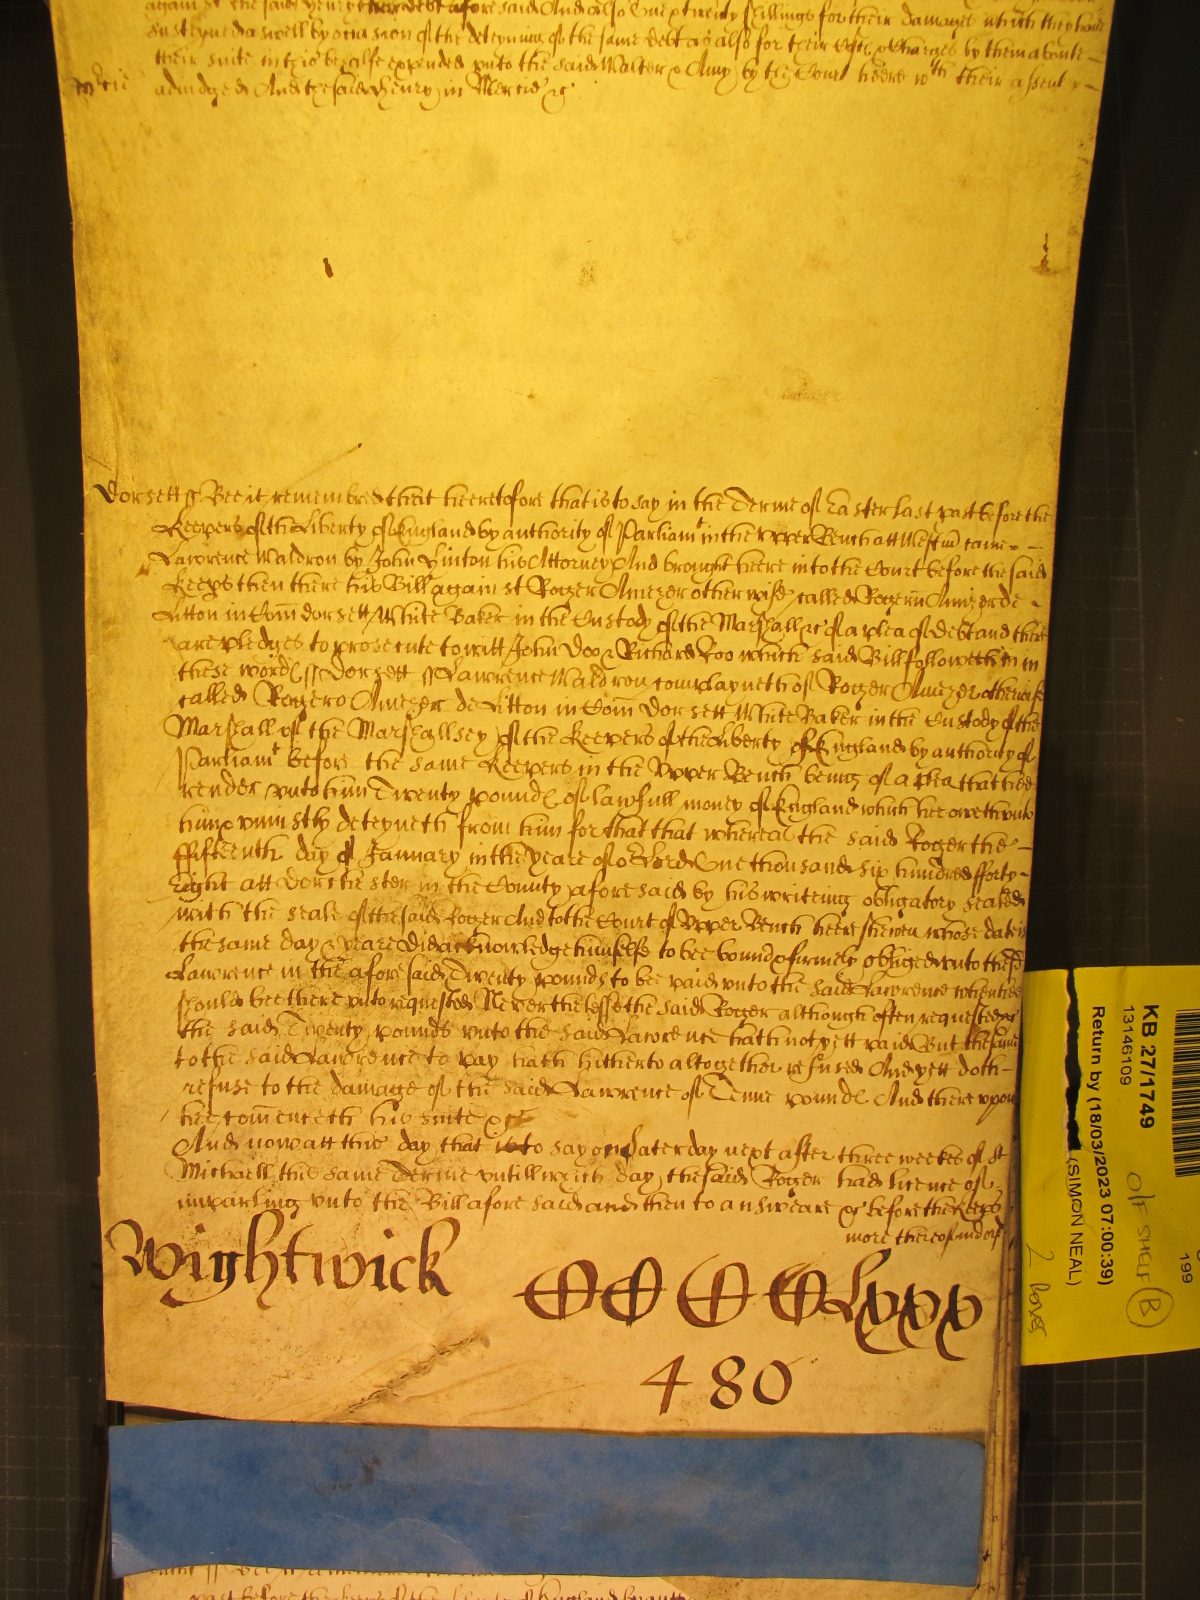 against the said Henry their debt aforesaid And also Sixe & twenty shillings for their damages which they have
susteyned aswell by occasion of the deteyning of the same debt as also for their Cost & Charges by them aboute
their suite in this behalfe expended unto the said Walter & Amy by the Court heere wth their assent
adiudged And the said Henry in Mercie &c
Dorsett ss Bee it remembred that heeretofore that is to say in the Terme of Easter last past before the
Keepers of the Liberty of England by authority of Parliamt in the vpper Bench att Westm came
Lawrence Waldron by John Linton his Attorney And brought heere into the Court before the said
Keeps then there his Bill against Roger Amezer otherwise called Rogerū Amizer de
Litton in Com̄ dorsett White Baker in the Custody of the Marshall &c of a plea of Debt and there
are pledges to prosecute to witt John Doo & Richard Roo which said Bill followeth in
these words ss Dorsett ss Lawrence Waldron complayneth of Roger Amezer otherwise
called Rogero Amezer de Litton in Com̄ Dorsett White Baker in the Custody of the
Marshall of the Marshallsey of the Keepers of the Liberty of England by authority of
Parliamt before the same Keepers in the Vpper Bench being of a plea that hee
render vnto him Twenty pounds of lawfull money of England which hee oweth vnto
him & vniustly deteyneth from him for that that whereas the said Roger the
ffifteenth day of January in the yeare of or Lord One thousand six hundred fforty
eight att Dorchester in the County aforesaid by his writeing obligatory sealed
with the seale of the said Roger And to the Court of Vpper Bench heere shewen whose date is
the same day & yeare Did acknowledge himselfe to bee bound & firmely obliged vnto the sd
Lawrence in the aforesaid Twenty pounds to bee paid vnto the said Lawrence when hee
should bee there vnto requested Neverthelesse the said Roger although often requested &c
the said Twenty pounds vnto the said Lawrence hath not yett paid But the same
to the said Lawrence to pay hath hitherto altogether refused And yett doth
refuse to the damage of the said Lawrence of Tenne pounds And therevpon
hee com̄enceth his suite &c
And now att this day that is to say on Saterday next after three weekes of St
Michaell this same Terme vntill which day the said Roger had licence of
imparling vnto the Bill aforesaid and then to answeare &c before the Keeps
more thereof indors
Wightwick
CCCClxxx
480
KB 27/1749
13146109
Return by (18/03/2023 07:00:39)
(SIMON NEAL)
199
O/F SHELF B
2 boxes